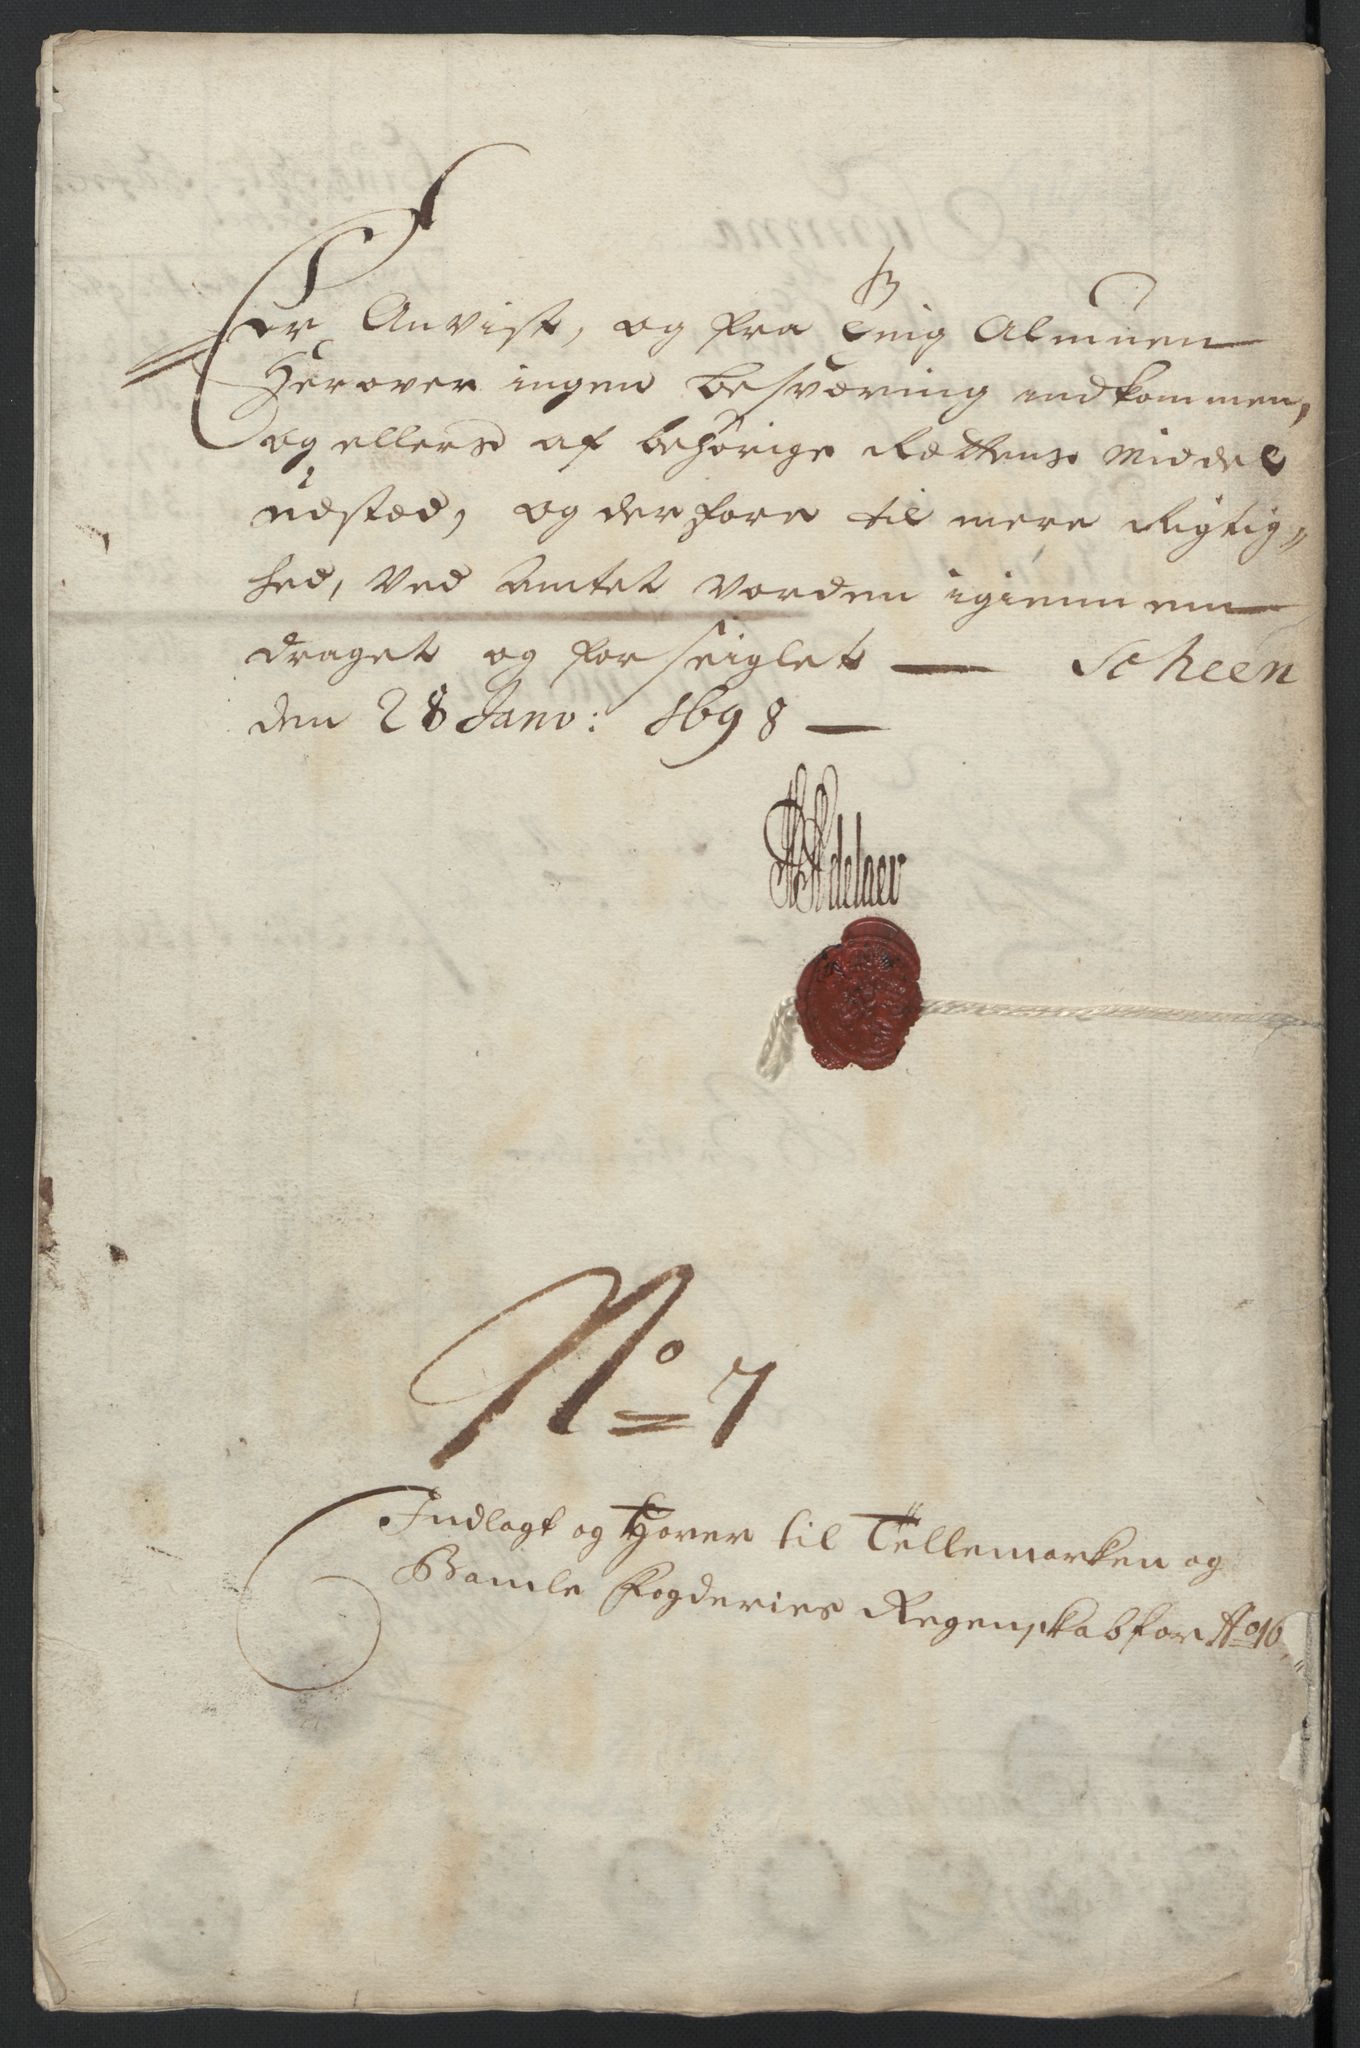 Er Anvist, og fra Menig Almuen
Herover ingen besværing indkommen,
og ellers af behörige Rettens Middel
udstæd, og derfore til mere Rigtig-
hed, Ved Amtet vorden igiennem
draget og forseiglet — Scheen
den 28 Janv: 1698 —
Adelaer
No 7
Indlagt og Hører til Tellemarken og
Bamle Fogderies Regenskab for Ao 16